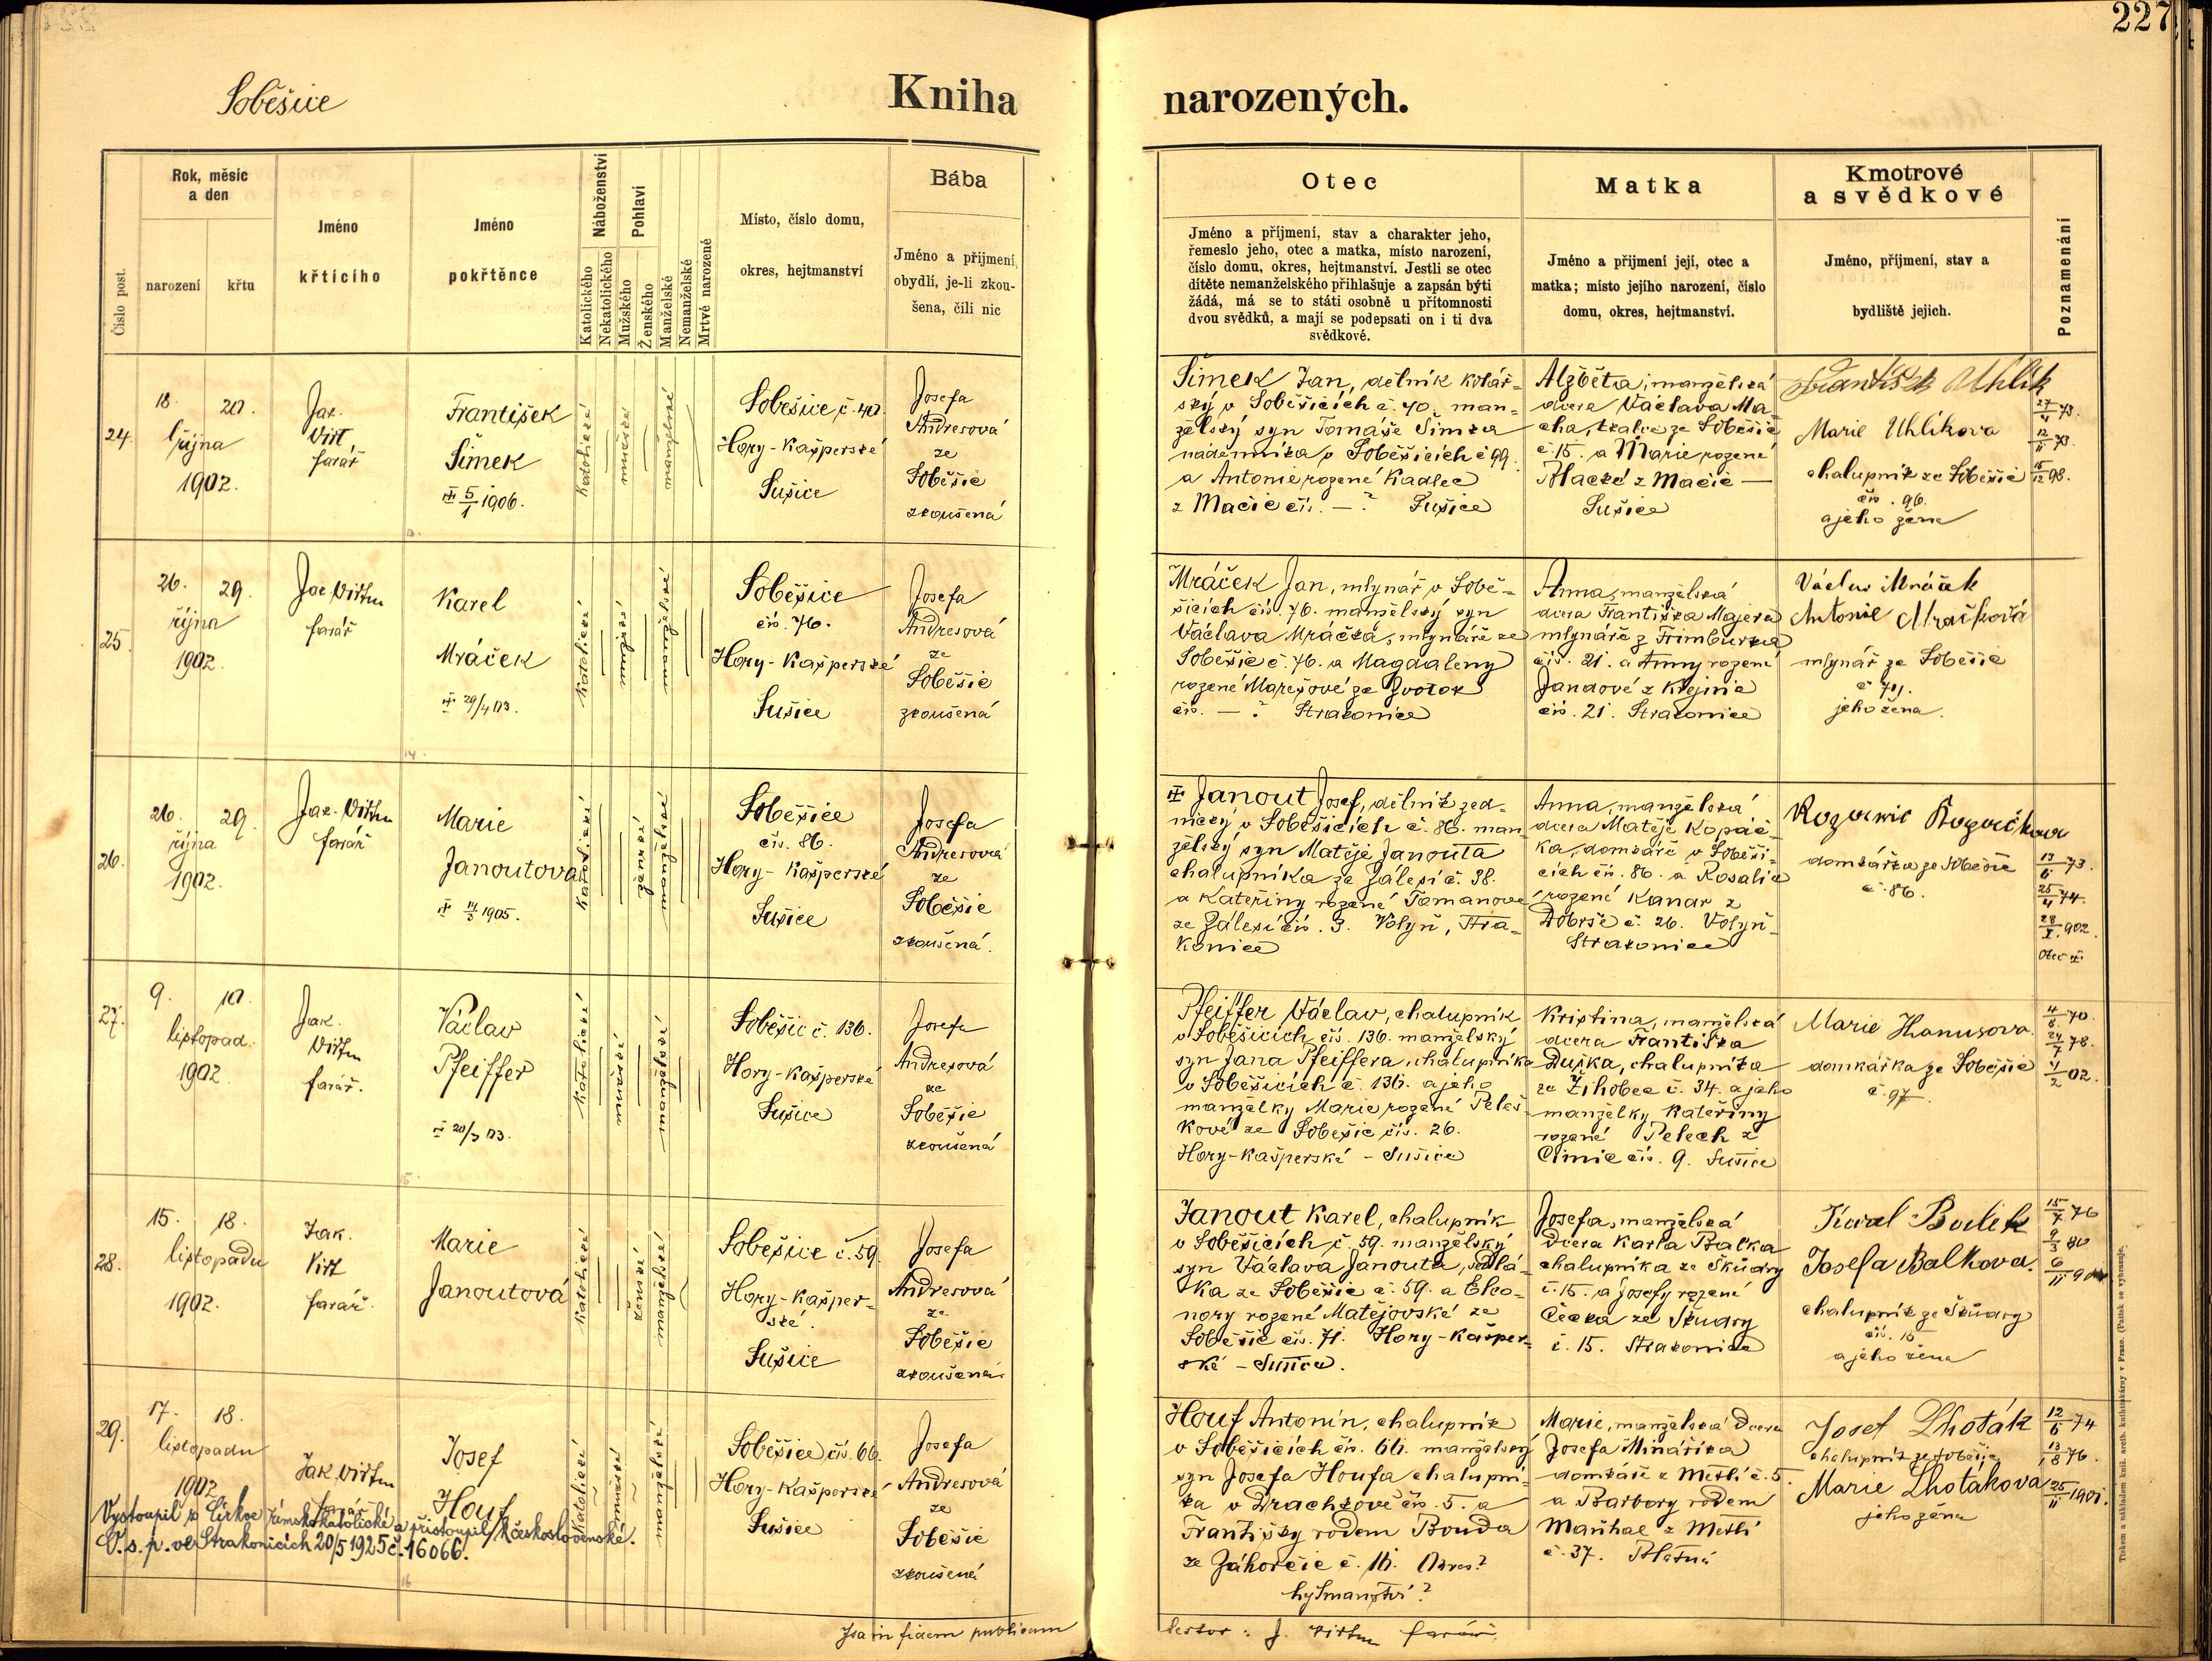 227
Soběšice
Kniha narozených.
Číslo post.
Rok, měsíc
a den
narození
křtu
Jméno
křtícího
Jméno
pokřtěnce
Náboženství
Katolického
Nekatolického
Pohlaví
Mužského
Ženského
Manželské
Nemanželské
Mrtvé narozené
Místo, číslo domu,
okres, hejtmanství
Bába
Jméno a přijmení,
obydlí, je-li zkou-
šena, čili nic
Otec
Jméno a příjmení, stav a charakter jeho,
řemeslo jeho, otec a matka, místo narození,
číslo domu, okres, hejtmanství. Jestli se otec
dítěte nemanželského přihlašuje a zapsán býti
žádá, má se to státi osobně u přítomnosti
dvou svědků, a mají se podepsati on i ti dva
svědkové.
Matka
Jméno a přijmení její, otec a
matka; místo jejího narození, číslo
domu, okres, hejtmanství.
Kmotrové
a svědkové
Jméno, příjmení, stav a
bydliště jejich.
Poznamenání
24.
18. 20.
října
1902.
Jak.
Virt,
farář
František
Šimek
5/1 1906.
katolické
mužské
manželské
Soběšice č. 40
Hory-Kašperské
Sušice
Josefa
Andresová
ze
Soběšic
zkoušená
Šimek Jan, dělník kolář-
ský v Soběšicích č. 40. man-
želský syn Tomáše Šimka
nádenníka v Soběšicích č 99.
a Antonie rozené Kadlec
z Mačic čís. — ? Sušice
Alžběta, manželská
dcera Václava Ma-
cha, tkalce ze Soběšic
č. 15. a Marie rozené
z Mačic —
Sušice
František Uhlík
Marie Uhlíkova
chalupník ze Soběšic
čís. 96.
a jeho žena
27/4 73.
12/11 73.
15/12 98.
25.
26. 29.
října
1902.
Jak Virtm
farář
Karel
Mráček
29/4 03.
katolické
mužské
manželské
Soběšice
čís. 76.
Hory-Kašperské
Sušice
Josefa
Andresová
ze
Soběšic
zkoušená
Mráček Jan, mlynář v Sobě-
šicích čís. 76. manželský syn
Václava Mráčka, mlynáře ze
Soběšic č. 76. a Magdaleny
rozené Marešové ze Zvotok
čís. — ? Strakonice
Anna, manželská
dcera Františka Majera
mlynáře z Frimburka
čís. 21. a Anny rozené
Jandové z Krejnic
čís. 21. Strakonice
Václav Mráček
Antonie Mračková
mlynář ze Soběšic
jeho žena.
26.
26. 29.
října
1902.
Jak. Virtm
farář
Marie
Janoutova
14/3 1905.
katolické
ženské
manželské
Soběšice
čís. 86.
Hory-Kašperské
Sušice
Josefa
Andresová
ze
Soběšic
zkoušená.
Janout Josef, dělník zed-
nický v Soběšicích č. 86. man-
želský syn Matěje Janouta
chalupníka ze Zálesí č. 38.
a Kateřiny rozené Tomanove
ze Zálesí čís. 3. Volyň, Stra-
konice
Anna, manželská
dcera Matěje Kopáč-
ka, domkáře v Soběši-
cích čís. 86. a Rosalie
rozené Kanar z
Dobrše č. 26. Volyň-
Strakonice
domkářka ze Soběšic
č. 86.
13/6 73.
25/4 74.
28/I. 902.
27.
9. 10.
listopad.
1902.
Jak.
Virtm
farář.
Václav
Pfeiffer
20/3 03.
katolické
mužské
manželské
Soběšic č. 136.
Hory-Kašperské
Sušice
Josefa
Andresová
ze
Soběšic
zkoušená
Pfeiffer Václav, chalupník
v Soběšicích čís. 136. manželský
syn Jana Pfeiffera, chalupníka
v Soběšicích č. 136. a jeho
manželky Marie rozené Peleš-
kové ze Soběšic čís. 26.
Hory-Kašperské - Sušice
Kristina, manželská
dcera Františka
Duška, chalupníka
ze Žihobec č. 34. a jeho
manželky Kateřiny
rozené Pelech z
Čimic čís. 9. Sušice
Marie Hanusova.
domkářka ze Soběšic
č. 97.
4/8. 70.
24/7 78.
4/2 02.
28.
15. 18.
listopadu
1902.
Jak.
Virt
farář.
Marie
Janoutová
katolické
ženské
manželské
Soběšice č. 59.
Hory-Kašper-
ské.
Sušice
Josefa
Andresová
ze
Soběšic
zkoušená.
Janout Karel, chalupník
v Soběšicích č 59. manželský
syn Václava Janouta, sedlá-
ka ze Soběšic č. 59. a Eleo-
nory rozené Matějovské ze
Soběšic čís. 71. Hory-Kašper-
ské - Sušice.
Josefa, manželská
dcera Karla Balka
chalupníka ze Škudry
č. 15. a Josefy rozené
Čečka ze Škudry
č. 15. Strakonice
Karel Balek
Josefa Balkova.
chalupník ze Škudry
čís. 15
a jeho žena
15/7 76
9/3 80
29.
17. 18.
listopadu
1902
Jak. Virtm
farář
Josef
Houf
katolické
mužské
manželské
Vystoupil z Církve římskokatolické a přistoupil k československé.
O.s.p. ve Strakonicích 20/5 1925 č. 16066.
Soběšice čís. 66.
Hory-Kašperské
Sušice
Josefa
Andresová
ze
Soběšic
zkoušená
Houf Antonín, chalupník
v Soběšicích čís. 66. manželský
syn Josefa Houfa chalupní-
ka v Drachkově čís. 5. a
Františky rodem Bouda
ze Záhorčic č. 16. Okres?
hejtmanství?
Marie, manželská dcera
Josefa Mináříka
domkáře z Metlí č. 5.
a Barbory rodem
Maršhal z Metlí
č. 37. Blatná
Josef Lhoták
chalupník ze Soběšic
Marie Lhotákova
jeho žena
12/6 74
13/8 76.
25/11 1901.
Ita in fidem publicam
testor: J. Virtm farář.
Tiskem a nákladem kníž. arcib. knihtiskárny v Praze. (Patisk se vyhrazuje.